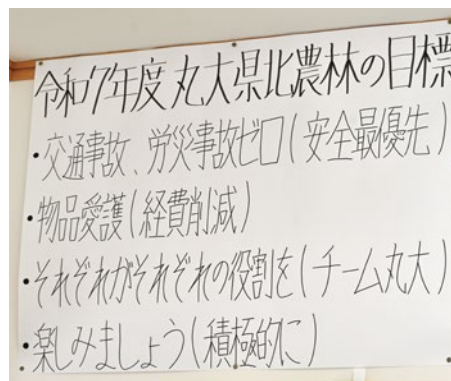 令和7年度 丸大県北農林の目標
・交通事故、労災事故ゼロ(安全最優先)
・物品愛護(経費削減)
・それぞれがそれぞれの役割を(チーム丸大)
・楽しみましょう(積極的に)